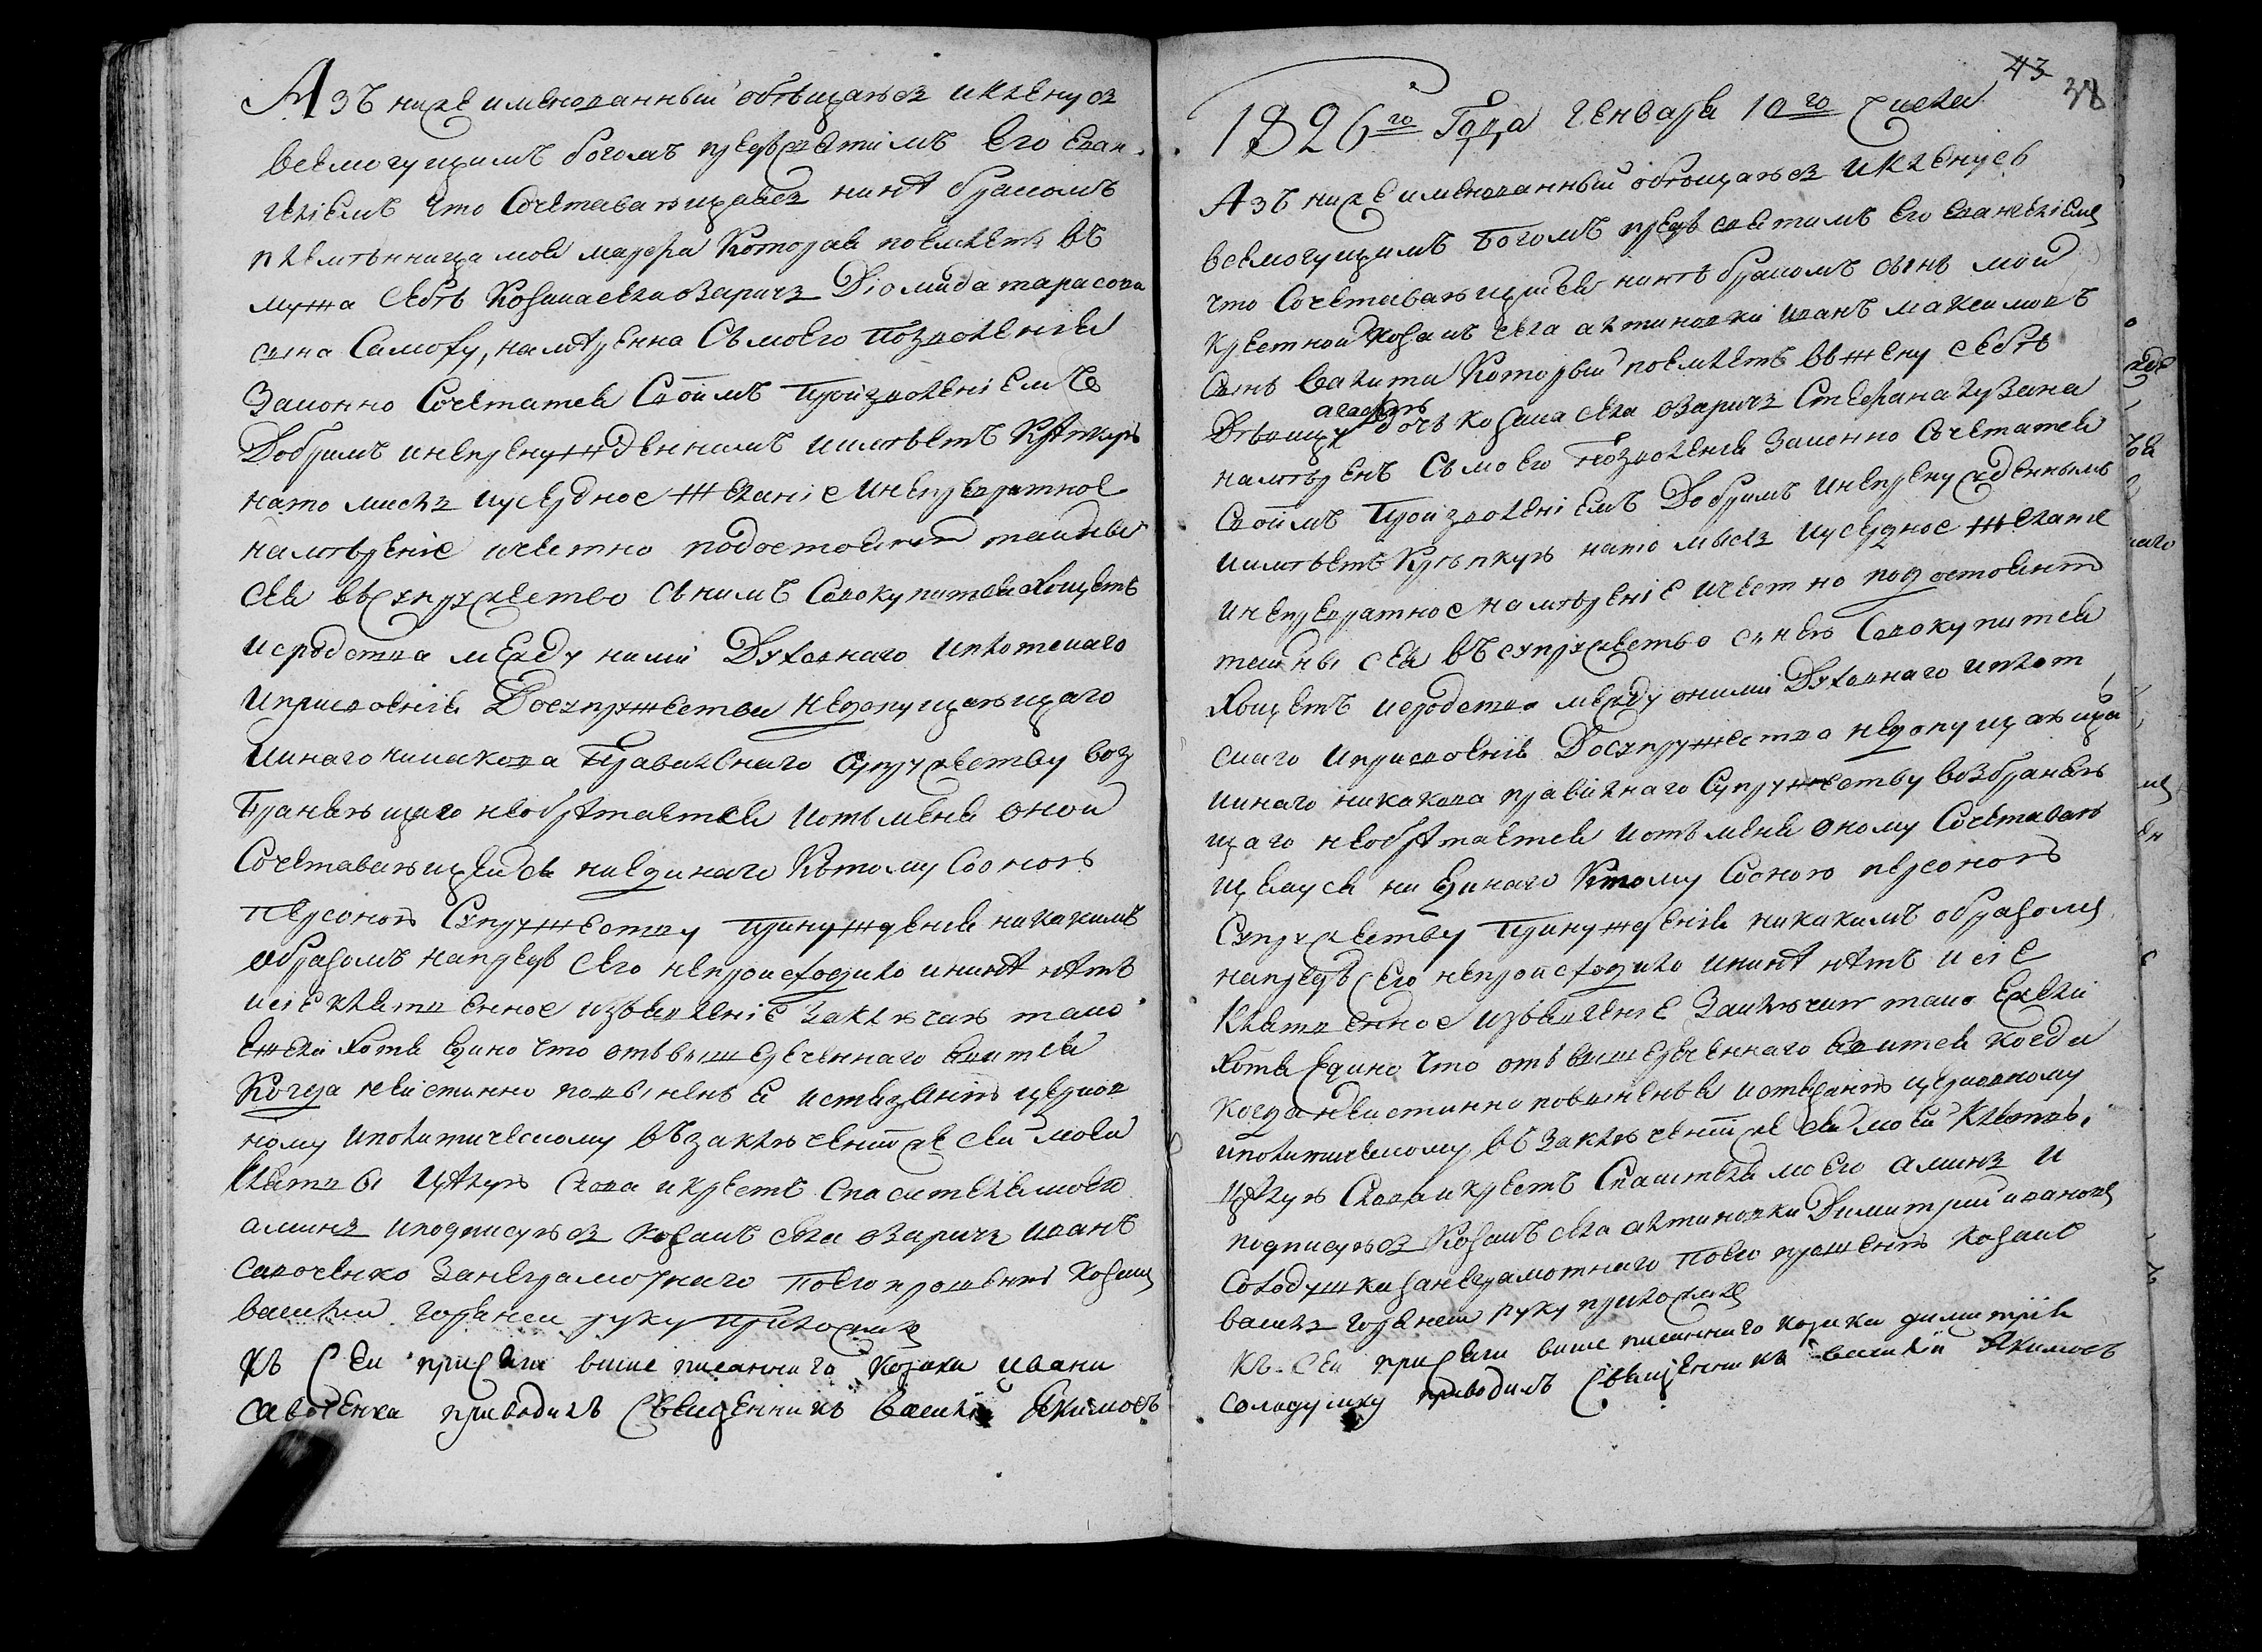 Азъ нижеименованный обѣщаюсь и кленусь
всемогущимъ богомъ предъ святимъ его еван-
геліемъ что Сочетавающаясь нинѣ бракомъ
племѣнница моя марфа Которая поемлетъ въ
мужа себѣ Козака села озаричъ Діомида тарасова
сына Самоху, намѣренна Съ моего позволенія
Законно Сочетатся Своимъ произволеніемъ
Добримъ и непренужденнимъ и имѣетъ Крѣпкую
на то мисль и усердное желаніе и непревратное
намѣреніе и честно по достоянію тайны
сея въ супружество съ нимъ Совокупится хощетъ
и сродства между нами Духовнаго и плотскаго
и присвоенія До супружества недопущающаго
и инаго никакова Правилнаго супружеству воз
браняющаго необрѣтается и отъ мене оной
Сочетавающейся ни единаго К тому Со оною
персоною Супружеству принужденія никакимъ
образомъ напредъ сего непроисходило и нинѣ нѣтъ
и сіе клятвенное изъявленіе заключаю тако
Ежели хотя едино что отъ вишереченнаго явится
Когда не истинно повыненъ я истязанію церков
ному и политическому въ заключеніи же сея моея
клятвы цѣлую слова и крестъ спасителя моего
аминь и подписуюсь козакъ села озаричъ иванъ
савоченко За неграмотнаго по его прошенію Козакъ
василій горянси руку приложилъ
къ Сей присяги више писаннаго козака ивана
савоченка приводилъ Священникъ василій Якимовъ
43
38
1826го Года генваря 10го числа
Азъ нижеименованный обѣщаюсь и кленусь
всемогущимъ Богомъ предъ святимъ его евангеліемъ
что Сочетавающійся нинѣ бракомъ сынъ мой
крестной Козакъ села алтиновки иванъ максимовъ
сынъ Калита Который поемлетъ въ жену себѣ
агафію
Дѣвицу дочь козака села озаричъ Стефана лузана
намѣренъ Съ моего позволенія Законно Сочетатся
Своимъ произволеніемъ Добримъ и непренужденнымъ
и имѣетъ Крѣпкую на то мысль и усердное желаніе
и непревратное намѣреніе и честно по достоянію
тайны сея въ супружество с нею Совокупится
хощетъ и сродства между оними Духовнаго и плот
скаго и присвоенія До супружества недопущающа
и инаго никакова правилнаго Супружеству возбраняю
щаго необрѣтается и отъ мене оному Сочетаваю
щемуся ни единаго К тому Со оною персоною
Супружеству принужденія никакимъ образомъ
напредъ сего непроисходило и нинѣ нѣтъ и сіе
Клятвенное изъявленіе Заключаю тако Ежели
хотя едино что отъ вишереченнаго явится когда
не истинно повиненъ я истязанію церковному
и политическому въ заключеніи же сея моея Клятвы
цѣлую Слова и крестъ Спасителя моего аминь и
подписуюсь Козакъ села алтиновки Димитрій ивановъ
Солодушка за неграмотнаго по его прошенію козакъ
василь горянси руку приложилъ
къ Сей присяги више писаннаго козака димитрія
солодушку приводилъ Священникъ василій Якимовъ